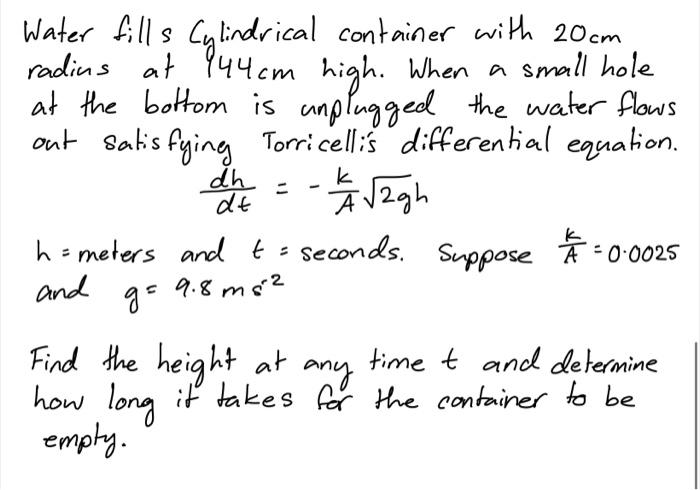 Water fills Cylindrical container with 20cm
radius at 144cm high. When a small hole
at the bottom is unplugged the water flows
out satisfying Torricelli's differential equation.
dh/dt = - k/A √2gh
h = meters and t = seconds. Suppose k/A = 0.0025
and g = 9.8 ms⁻²
Find the height at any time t and determine
how long it takes for the container to be
empty.